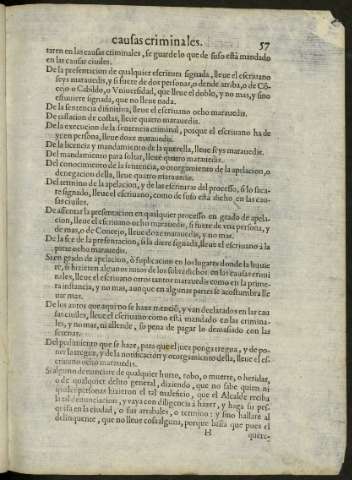 causas criminales. 57
taren en las causas criminales, se guarde lo que de suso está mandado
en las causas ciuiles.
De la presentacion de qualquier escritura signada, lleue el escriuano
seys marauedis, y si fuere de dos personas, o dende arriba, o de Cõ-
cejo o Cabildo, o Vniuersidad, que lleue el doblo, y no mas, y sino
estuuiere signada, que no lleue nada.
De la sentencia difinitiua, lleue el escriuano ocho marauedis.
De tassacion de costas, lleue quatro marauedis.
De la execucion de la sentencia criminal, porque el escriuano ha de
yr en persona, lleue doze marauedis.
De la licencia y mandamiento de la querella, lleue seys marauedis.
Del mandamiento para soltar, lleue quatro marauedis.
Del conocimiento de la sentencia, o otorgamiento de la apelacion, o
denegacion della, lleue quatro marauedis.
Del termino de la apelacion, y de las escrituras del processo, si lo saca-
re signado, lleue el escriuano, como de suso esta dicho, en las cau-
sas ciuiles.
De assentar la presentacion en qualquier processo en grado de apela-
cion, lleue el escriuano ocho marauedis, si fuere de vna persona, y
de mas, o de Concejo, lleue doze marauedis, y no mas.
De la fee de la presentacion, si la diere signada, lleue el escriuano a la
parte ocho marauedis.
Si en grado de apelacion, o suplicacion en los lugares donde la huuie
re, se hizieren algunos autos de los sobredichos en las causas crimi
nales, lleue el escriuano otros tantos marauedis como en la prime-
ra instancia, y no mas, aunque en algunas partes se acostumbra lle
uar mas.
De los autos que aqui no se haze menciõ, y van declarados en las cau
sas ciuiles, lleue el escriuano como está mandado en las crimina-
les, y no mas, ni allende, so pena de pagar lo demasiado con las
setenas.
Del pedimiento que se haze, para que el juez ponga tregua, y de po-
ner la tregua, y de la notificacion y otorgamiento della, lleue el es-
criuano ocho marauedis.
Si alguno denunciare de qualquier hurto, robo, o muerte, o heridas,
o de qualquier delito general, diziendo, que no sabe quien, ni
quales personas hizieron el tal maleficio, que el Alcalde reciba
la tal denunciacion, y vaya con diligencia a hazer, y haga su pes-
quisa en la ciudad, o sus arrabales, o termino: y sino hallare al
delinquente, que no lleue cosa alguna, porque basta que pues el
H quere-